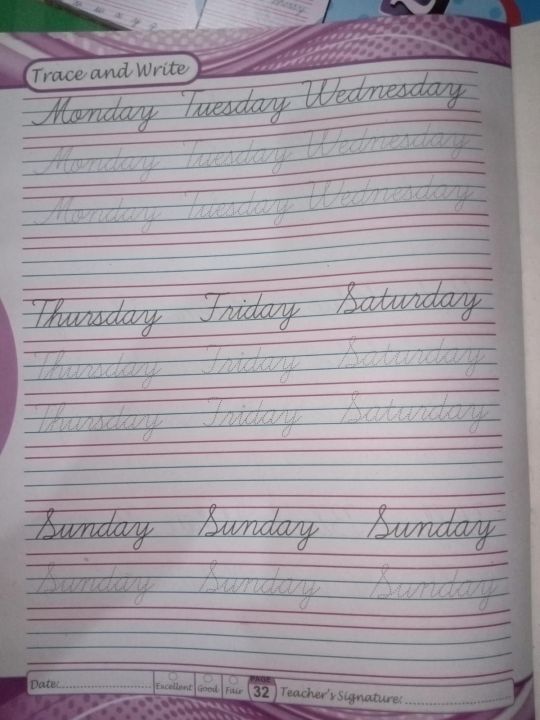 Trace and Write
Monday Tuesday Wednesday
Monday Tuesday Wednesday
Monday Tuesday Wednesday
Thursday Friday Saturday
Thursday Friday Saturday
Thursday Friday Saturday
Sunday Sunday Sunday
Sunday Sunday Sunday
Date: Excellent Good Fair PAGE 32 Teacher's Signature: